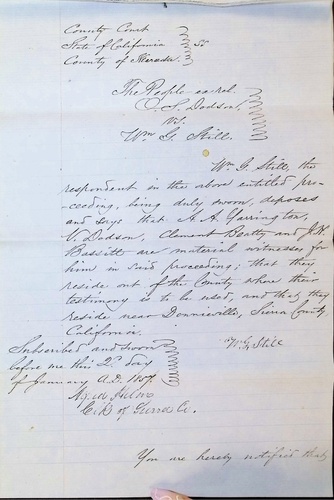 County Court
State of California } SS
County of Nevada
The People ex rel.
O. S. Dodson
vs.
Wm G. Still.
Wm G. Still, the
respondent in the above entitled pro-
ceeding, being duly sworn, deposes
and says that A. A. Yarrington,
V. Dodson, Clement Beatty and J. H.
Bassitt are material witnesses for
him in said proceeding; that they
reside out of the County where their
testimony is to be used, and that they
reside near Downieville, Sierra County
California.
Subscribed and sworn
before me this 2d day
of January A.D. 1857.
Clk of Co.
Wm G. Still
You are hereby notified that